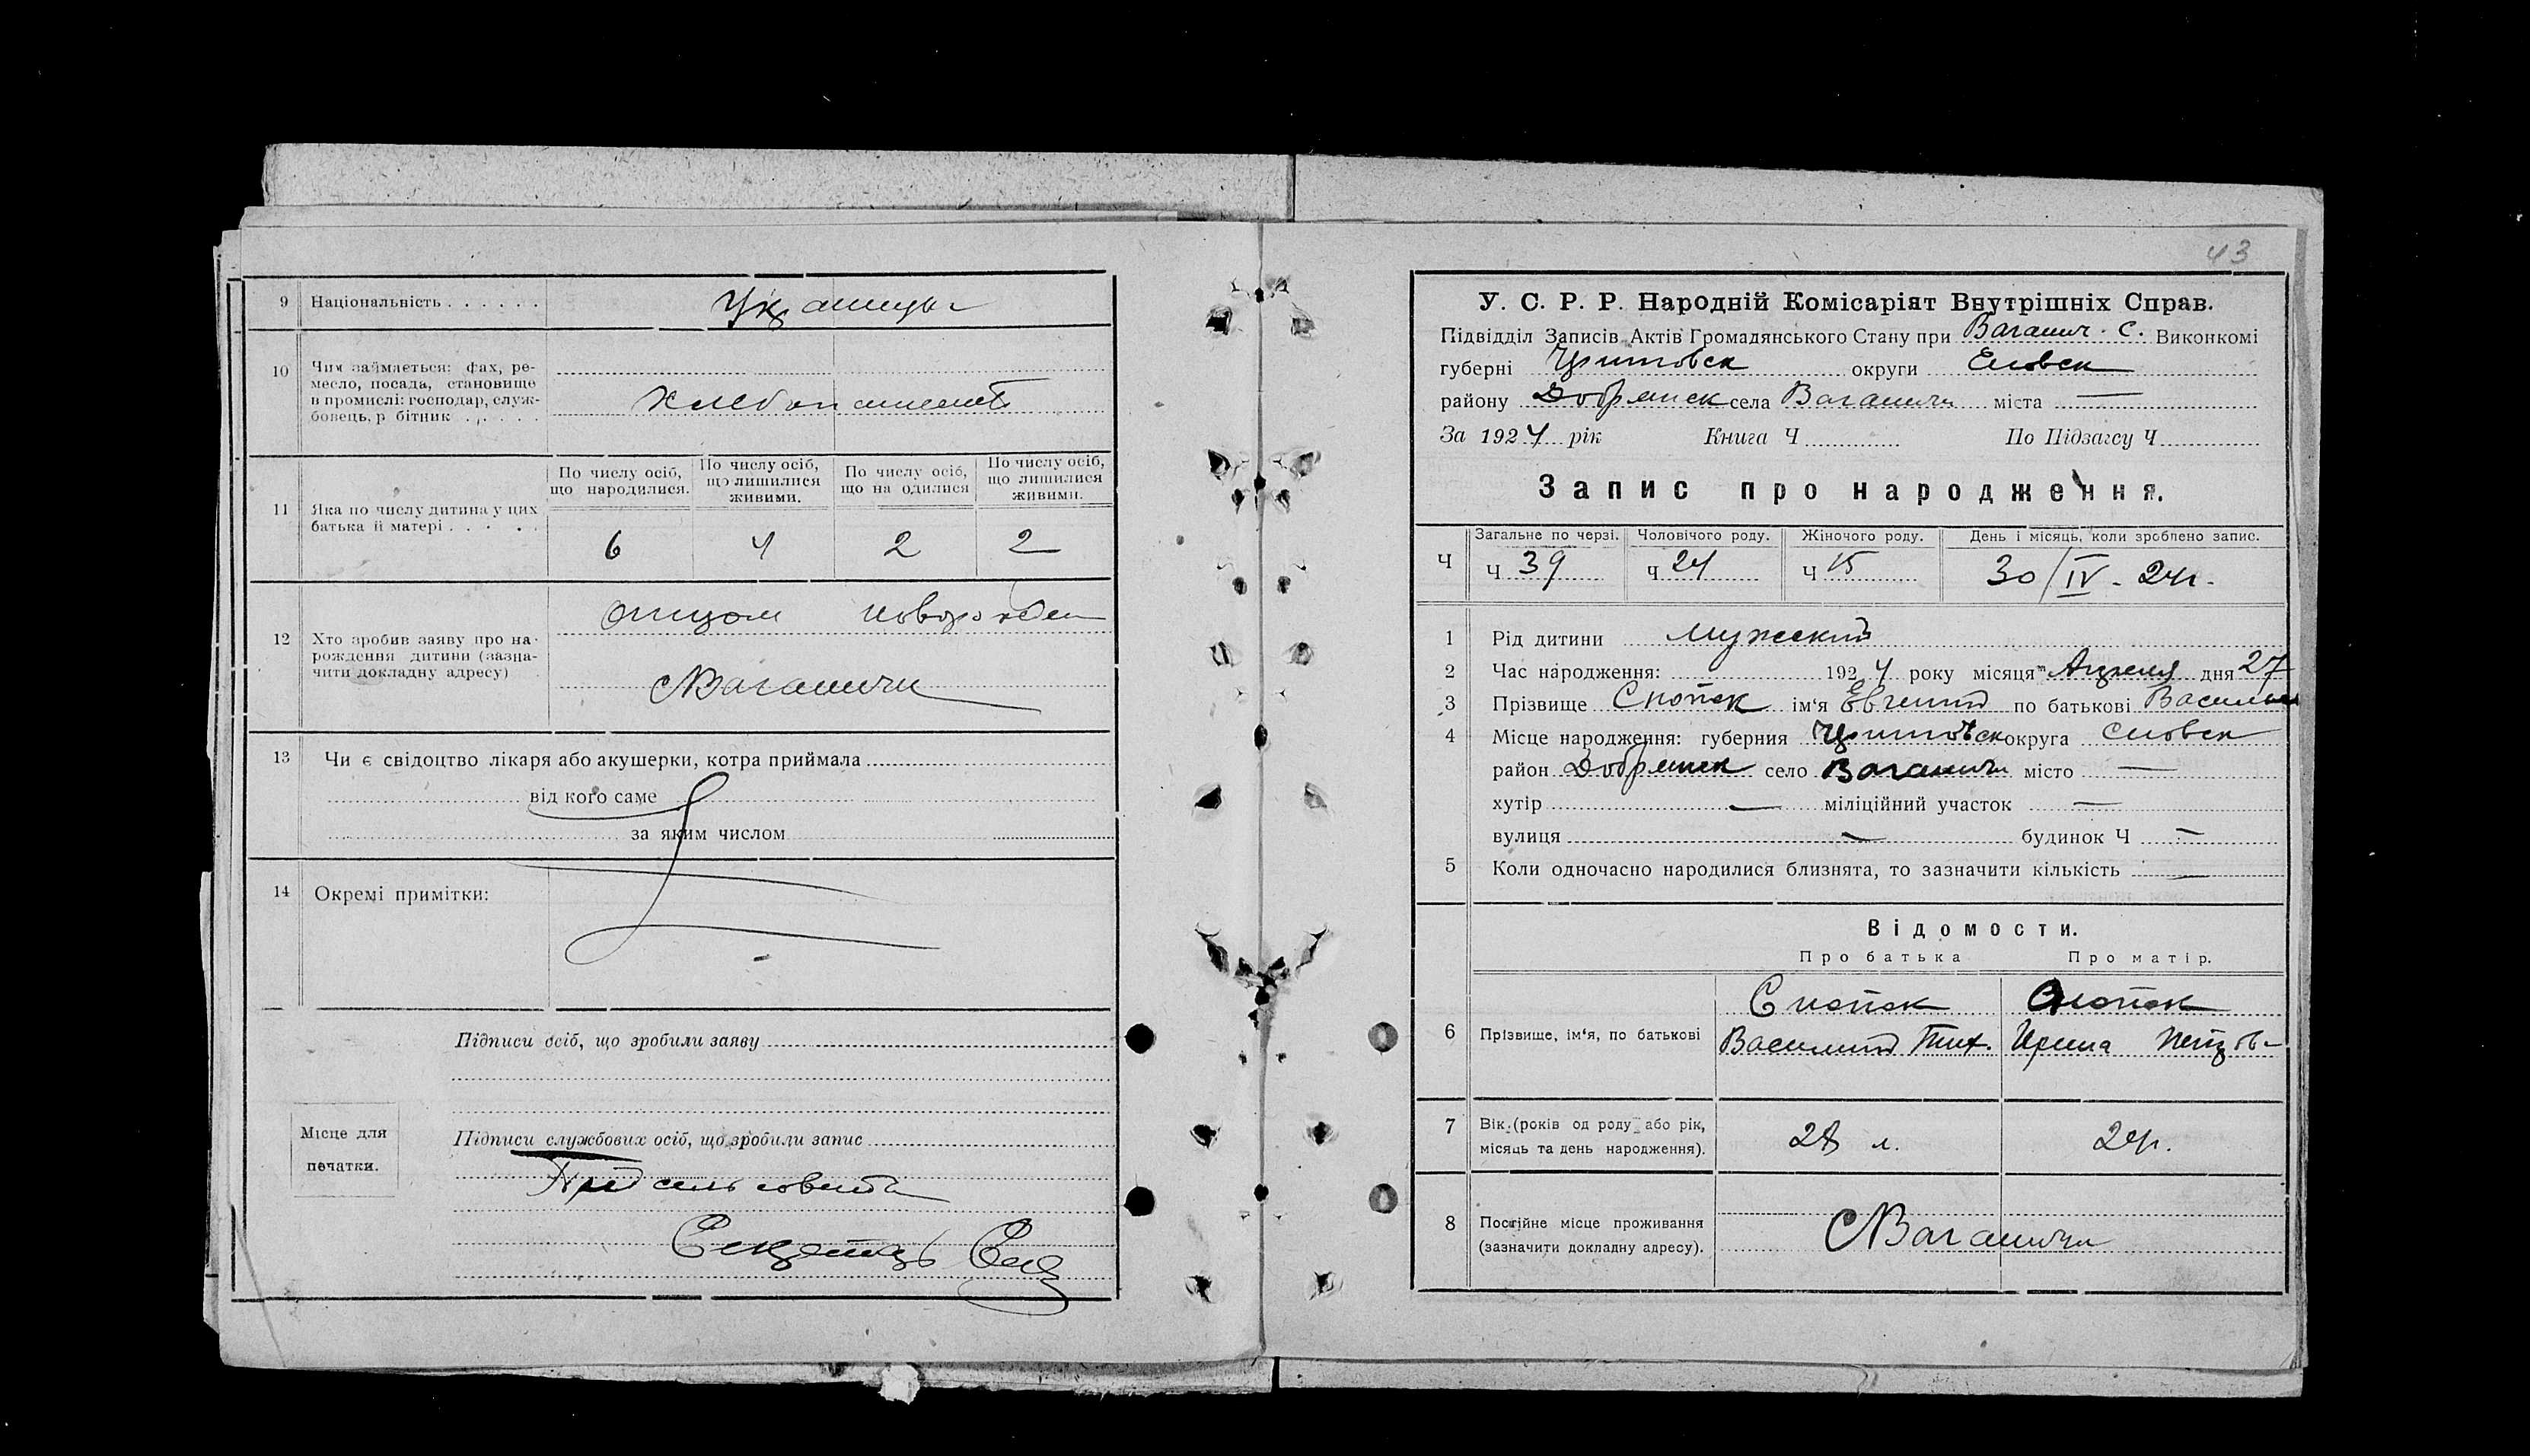 9 Національність . . . . . . Украинцы
10 Чим займається: фах, ре-
месло, посада, становище
в промислі: господар, служ-
бовець, р бітник . . . . . хлебопашест
11 Яка по числу дитина у цих
батька й матері . . . . .
По числу осіб,
що народилися.
По числу осіб,
що лишилися
живими.
По числу осіб,
що на одилися
По числу осіб,
що лишилися
живими.
6 4 2 2
12 Хто зробив заяву про на-
рождення дитини (зазна-
чити докладну адресу)
отцом новорожден
с Ваганичи
13 Чи є свідоцтво лікаря або акушерки, котра приймала
від кого саме
за яким числом
14 Окремі примітки:
Підписи осіб, що зробили заяву
Місце для
печатки.
Підписи службових осіб, що зробили запис
Пред сельсовета
Секретарь
43
У. С. Р. Р. Народній Комісаріят Внутрішніх Справ.
Підвідділ Записів Актів Громадянського Стану при Ваганич. С. Виконкомі
губерні округи Сновск
району Добрянск села Ваганичи міста —
За 1924 рік Книга Ч По Підзагсу Ч
Запис про народження.
Ч
Загальне по черзі. Чоловічого роду. Жіночого роду. День і місяць, коли зроблено запис.
Ч 39 Ч 24 Ч 15 30/IV - 24 г.
1 Рід дитини мужский
2 Час народження: 1924 року місяця Апреля дня 27
3 Прізвище Снопок ім‘я Евгений по батькові Василье
4 Місце народження: губерния округа Сновск
район Добрянск село Ваганичи місто —
хутір — міліційний участок —
вулиця — будинок Ч —
5 Коли одночасно народилися близнята, то зазначити кількість —
Відомости.
Про батька Про матір.
6 Прізвище, ім‘я, по батькові
Снопок Снопок
Василий Тих. Ирина Петров-
7 Вік (років од роду або рік,
місяць та день народження).
28 л. 24 г.
8 Постійне місце проживання
(зазначити докладну адресу).
с Ваганичи